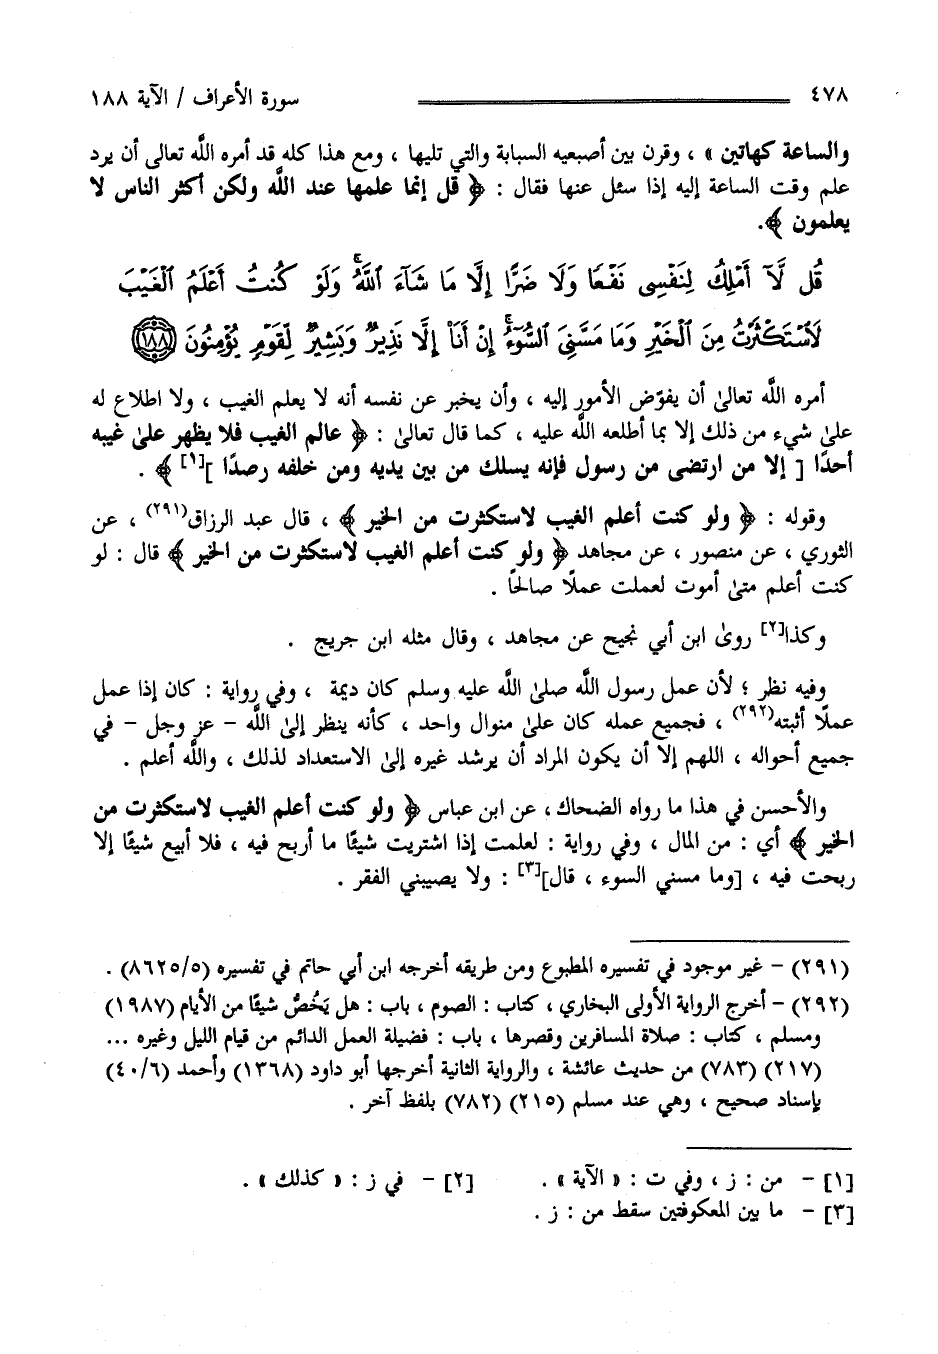 ٤٧٨ سورة الأعراف / الآية ١٨٨
والساعة كهاتين » ، وقرن بين أصبعيه السبابة والتي تليها ، ومع هذا كله قد أمره اللَّه تعالى أن يرد
علم وقت الساعة إليه إذا سئل عنها فقال : ﴿ قل إنما علمها عند اللَّه ولكن أكثر الناس لا
يعلمون ﴾.
قُل لَّآ أَمْلِكُ لِنَفْسِى نَفْعًا وَلَا ضَرًّا إِلَّا مَا شَآءَ ٱللَّهُ ۚ وَلَوْ كُنتُ أَعْلَمُ ٱلْغَيْبَ
لَٱسْتَكْثَرْتُ مِنَ ٱلْخَيْرِ وَمَا مَسَّنِىَ ٱلسُّوٓءُ ۚ إِنْ أَنَا۠ إِلَّا نَذِيرٌ وَبَشِيرٌ لِّقَوْمٍ يُؤْمِنُونَ ١٨٨
أمره اللَّه تعالىٰ أن يفوّض الأمور إليه ، وأن يخبر عن نفسه أنه لا يعلم الغيب ، ولا اطلاع له
علىٰ شيء من ذلك إلا بما أطلعه اللَّه عليه ، كما قال تعالىٰ : ﴿ عالم الغيب فلا يظهر علىٰ غيبه
أحدًا [ إلا من ارتضى من رسول فإنه يسلك من بين يديه ومن خلفه رصدًا ][١] ﴾ .
وقوله : ﴿ ولو كنت أعلم الغيب لاستكثرت من الخير ﴾ ، قال عبد الرزاق(٢٩١) ، عن
الثوري ، عن منصور ، عن مجاهد ﴿ ولو كنت أعلم الغيب لاستكثرت من الخير ﴾ قال : لو
كنت أعلم متىٰ أموت لعملت عملًا صالحًا .
وكذا[٢] روىٰ ابن أبي نجيح عن مجاهد ، وقال مثله ابن جريج .
وفيه نظر ؛ لأن عمل رسول اللَّه صلىٰ اللَّه عليه وسلم كان ديمة ، وفي رواية : كان إذا عمل
عملًا أثبته(٢٩٢) ، فجميع عمله كان علىٰ منوال واحد ، كأنه ينظر إلىٰ اللَّه - عز وجل - في
جميع أحواله ، اللهم إلا أن يكون المراد أن يرشد غيره إلىٰ الاستعداد لذلك ، واللَّه أعلم .
والأحسن في هذا ما رواه الضحاك، عن ابن عباس ﴿ ولو كنت أعلم الغيب لاستكثرت من
الخير ﴾ أي : من المال ، وفي رواية : لعلمت إذا اشتريت شيئًا ما أربح فيه ، فلا أبيع شيئًا إلا
ربحت فيه ، [وما مسني السوء ، قال][٣] : ولا يصيبني الفقر .
(٢٩١) - غير موجود في تفسيره المطبوع ومن طريقه أخرجه ابن أبي حاتم في تفسيره (٨٦٢٥/٥) .
(٢٩٢) - أخرج الرواية الأولى البخاري ، كتاب : الصوم ، باب : هل يَخُصُّ شيئًا من الأيام (١٩٨٧)
ومسلم ، كتاب : صلاة المسافرين وقصرها ، باب : فضيلة العمل الدائم من قيام الليل وغيره ...
(٢١٧) (٧٨٣) من حديث عائشة ، والرواية الثانية أخرجها أبو داود (١٣٦٨) وأحمد (٤٠/٦)
بإسناد صحيح ، وهي عند مسلم (٢١٥) (٧٨٢) بلفظ آخر .
[١] - من : ز ، وفي ت : « الآية » . [٢] - في ز : « كذلك » .
[٣] - ما بين المعكوفتين سقط من : ز .